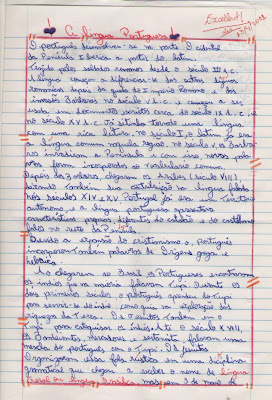 Excelente!
A língua Portuguesa
O português desenvolveu-se na parte Ocidental
da Península Ibérica a partir do latim
trazido pelos soldados romanos desde o século III a.c.
A língua começou a diferenciar-se das outras línguas
românicas depois da queda do Império Romano e das
invasões Bárbaras no século V d.c. e começou a ser
usada em documentos escritos cerca do século IX d.c. e
no século XV d.c. Já se tinha tornado uma língua
com uma rica literatura. No século I, o latim já era
a língua comum naquela região. No século V, os Bárba-
ros invadiram a Península e com isso novas pala-
vras foram incorporadas ao vocabulário comum.
Depois dos Bárbaros chegaram os Árabes (século VIII),
deixando também sua contribuição na língua falada.
Nos séculos XIV e XV Portugal já era um território
autônomo e a língua portuguesa apresentava
características próprias, diferentes do catalão e do castelhano
falados no resto da Península.
Devido a expansão do cristianismo o Português
incorporou também palavras de Origens grega e
hebraica.
Ao chegarem ao Brasil os Portugueses encontraram
os índios que na maioria falavam Tupi. Durante os
dois primeiros séculos o português aprendeu do Tupi
para servir-se do índio como guia na exploração das
riquezas da Terra. E os Jesuítas também com o
Tupi para catequizar os índios. Até o século XVIII,
os Bandeirantes, mercadores e sertanistas falavam uma
mescla do português com o Tupi. Os Jesuítas
Organizaram essa fala rústica em uma disciplina
gramatical que chegou a receber o nome de língua
Geral ou língua brasílica, mas em 3 de maio de